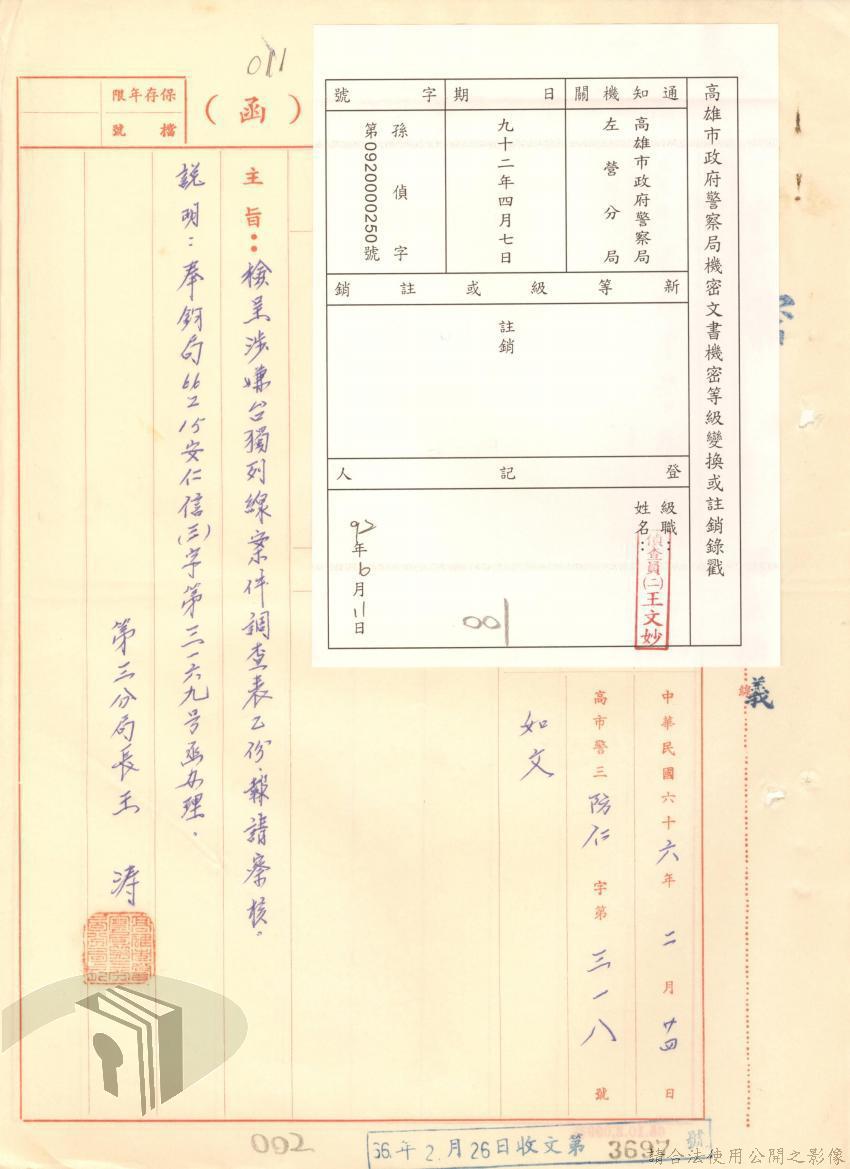 011
高雄市政府警察局機密文書機密等級變換或註銷錄戳
通知機關
高雄市政府警察局
左營分局
日期
九十二年四月七日
字號
孫偵字
第0920000250號
新等級或註銷
註銷
登記人
級職：
姓名：
偵查員(二)王文妙
92年6月11日
001
保存年限
檔號
（函）
義
線
中華民國六十六年二月廿四日
高市警三防仁字第三一八號
如文
主旨：檢呈涉嫌台獨列線案件調查表乙份，報請察核。
說明：奉鈞局66 2 15安仁信(三)字第三一六九号函办理。
第三分局長王 濤
002
66.年2.月26日收文第3697號
請合法使用公開之影像